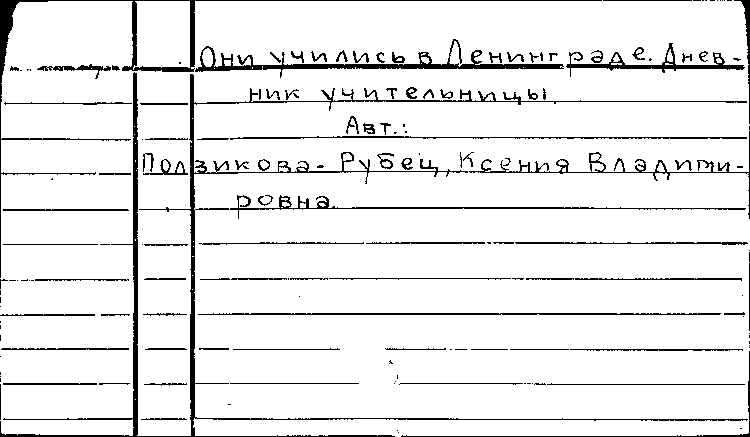 Они учились в Ленинграде. Днев-
ник учительницы.
Авт.:
Ползикова-Рубец, Ксения Владими-
ровна.